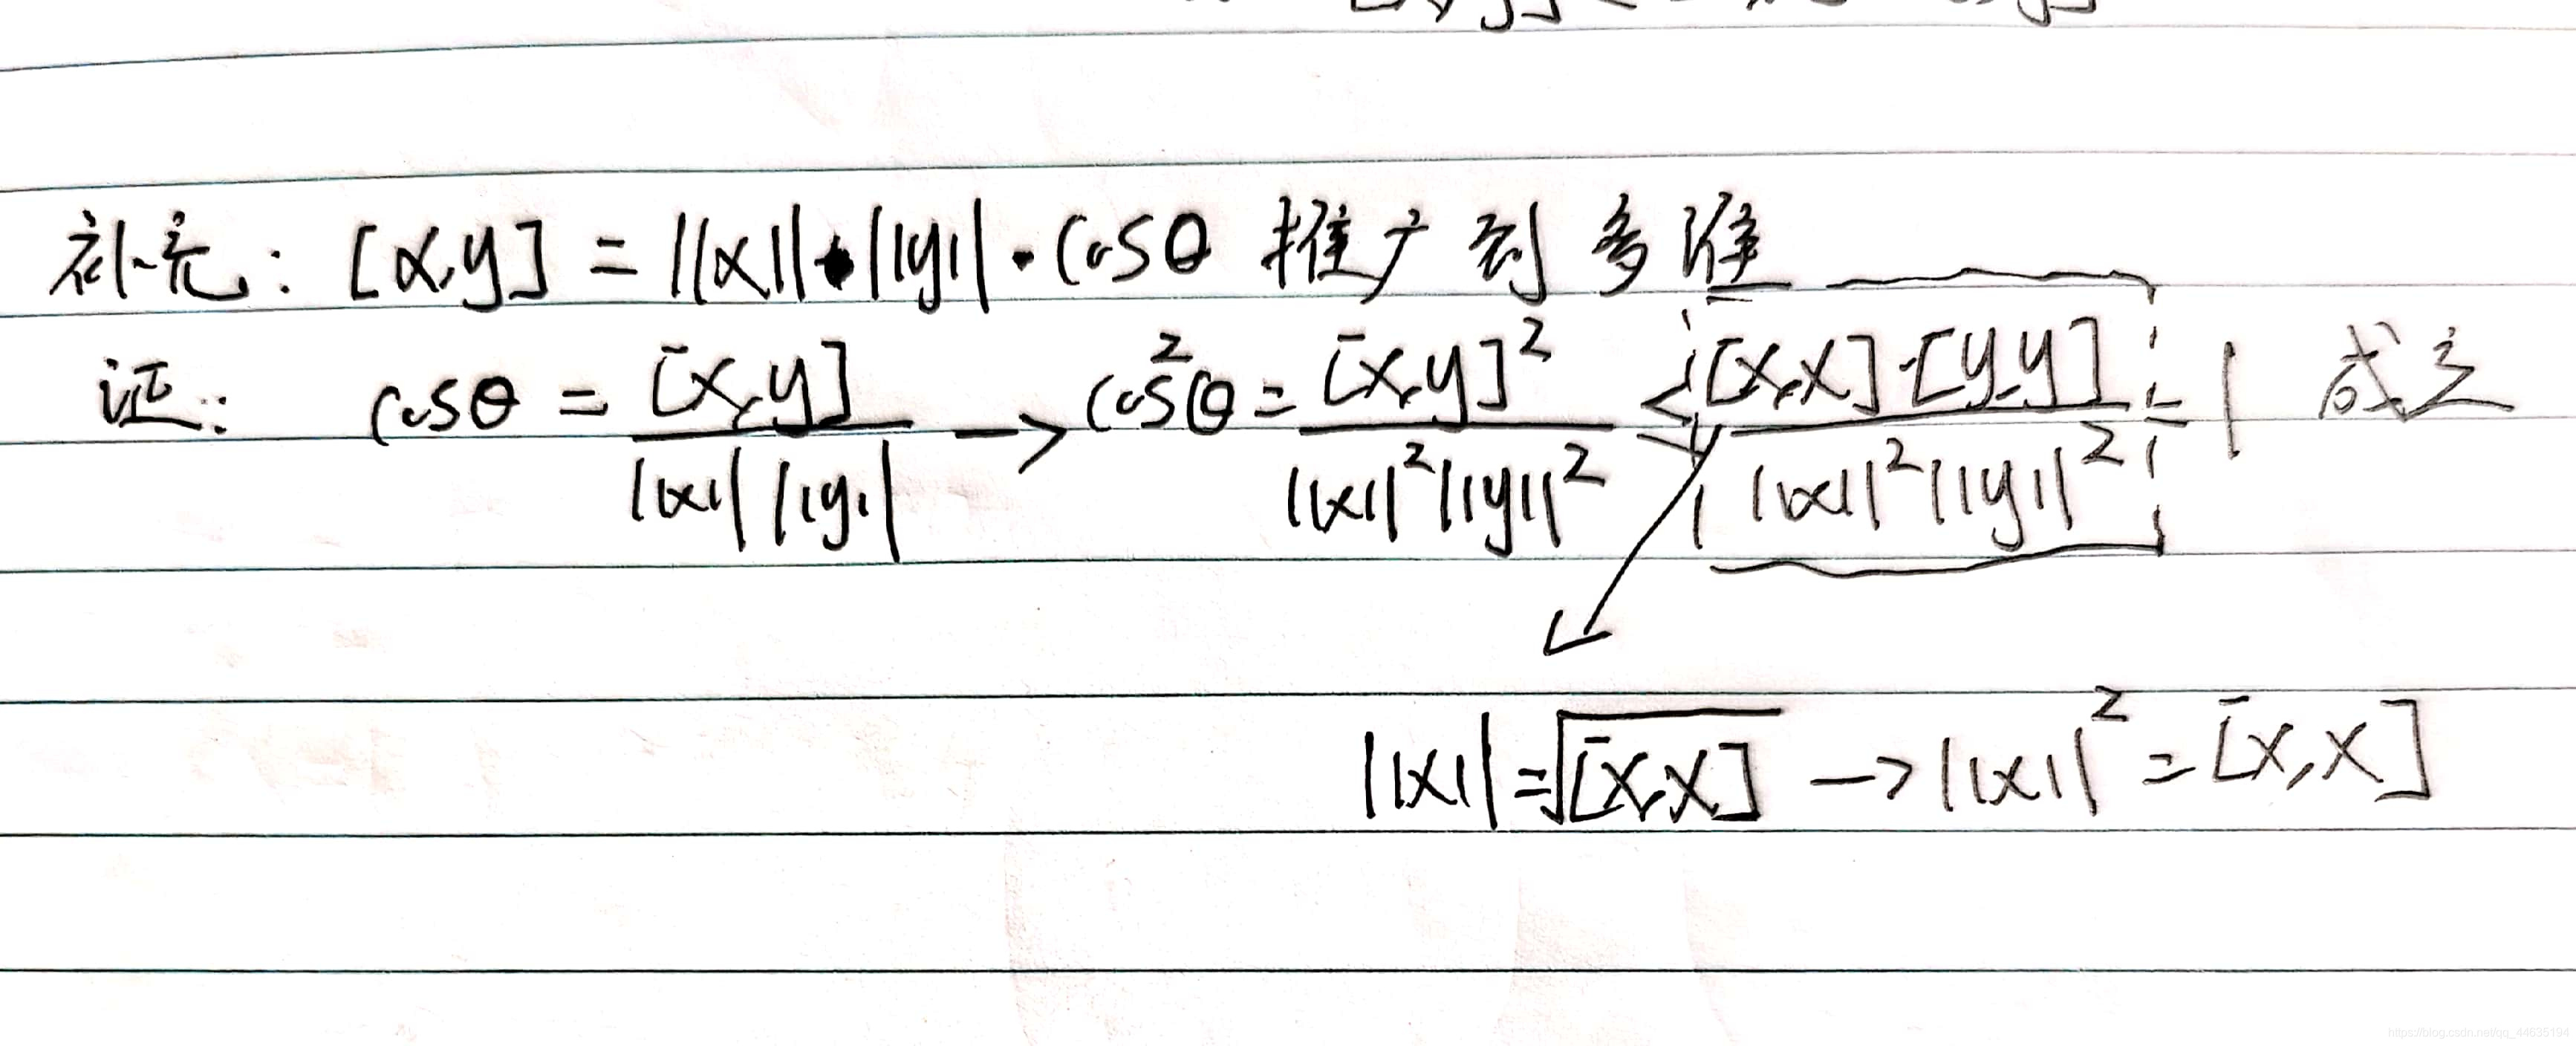 补充: [x,y] = ||x||·||y||·cosθ 推广到多维
证: cosθ = [x,y] / ||x|| ||y|| -> cos²θ = [x,y]² / ||x||²||y||² ≤ [x,x]·[y,y] / ||x||²||y||² = 1 成立
||x|| = √[x,x] -> ||x||² = [x,x]
https://blog.csdn.net/qq_44635194